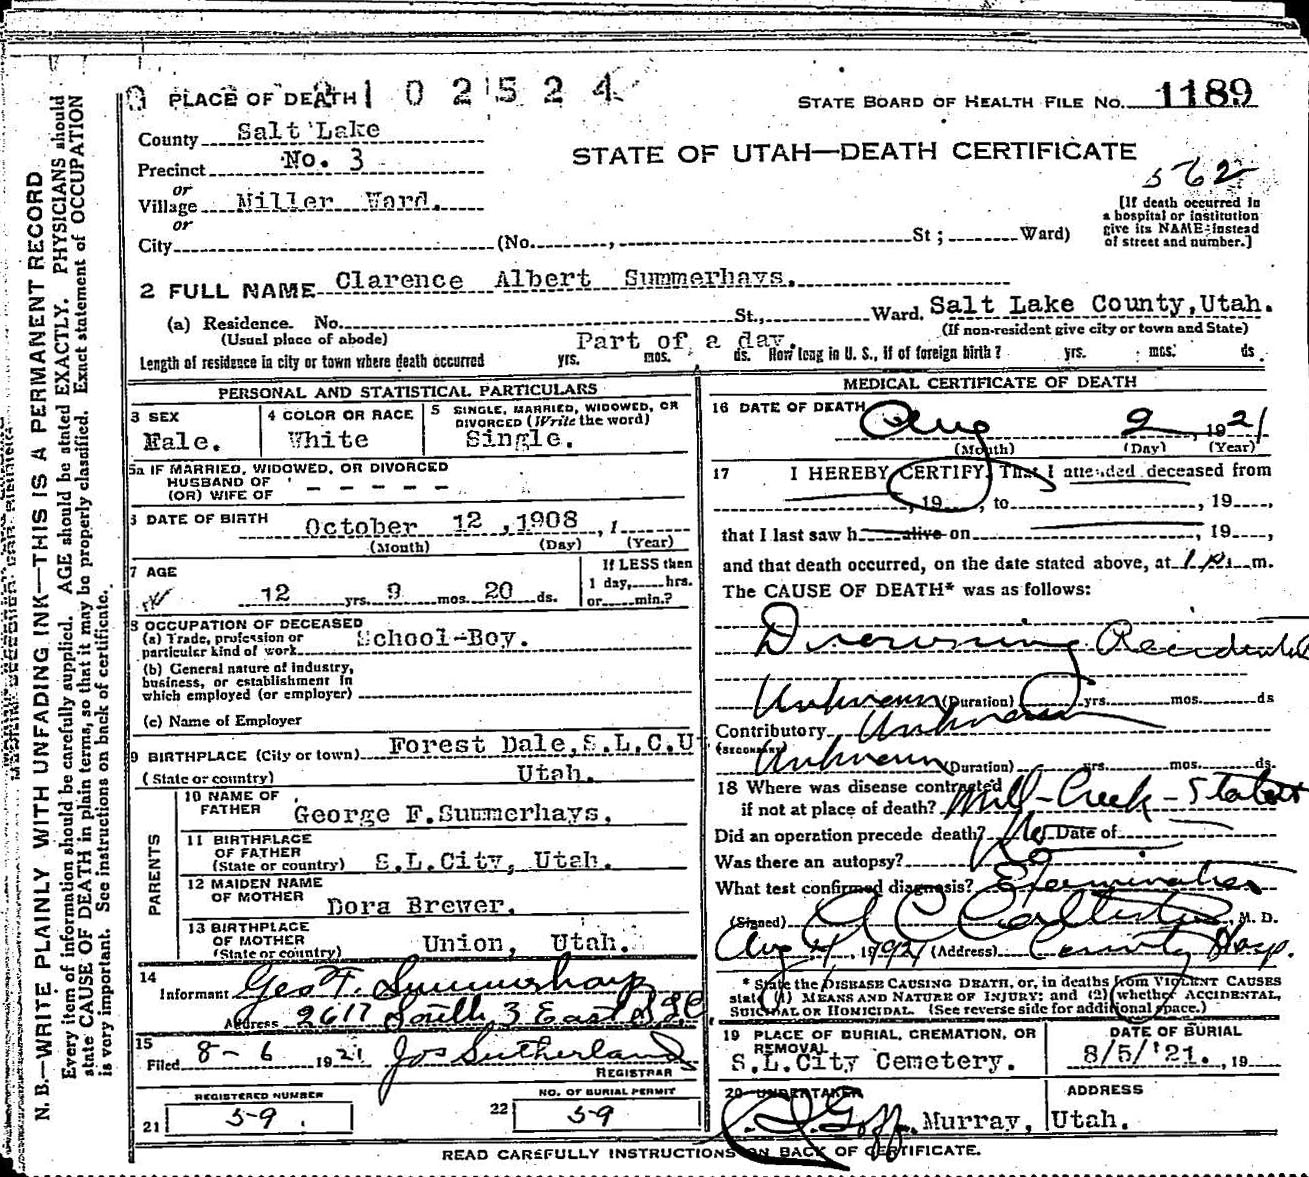 PLACE OF DEATH 2102524
STATE BOARD OF HEALTH FILE NO. 1189
County Salt Lake
Precinct No. 3
STATE OF UTAH—DEATH CERTIFICATE
562
or
Village Miller Ward.
or
City (No. , St ; Ward)
[If death occurred in
a hospital or institution
give its NAME instead
of street and number.]
2 FULL NAME Clarence Albert Summerhays.
(a) Residence. No. St., Ward. Salt Lake County, Utah.
(Usual place of abode) (If non-resident give city or town and State)
Part of a day.
Length of residence in city or town where death occurred yrs. mos. ds. How long in U. S., if of foreign birth? yrs. mos. ds.
PERSONAL AND STATISTICAL PARTICULARS
3 SEX
Male.
4 COLOR OR RACE
White
5 SINGLE, MARRIED, WIDOWED, OR
DIVORCED (Write the word)
Single.
5a IF MARRIED, WIDOWED, OR DIVORCED
HUSBAND OF
(OR) WIFE OF - - - - - -
6 DATE OF BIRTH October 12, 1908, 1
(Month) (Day) (Year)
7 AGE
12 yrs. 9 mos. 20 ds.
If LESS then
1 day, hrs.
or min.?
8 OCCUPATION OF DECEASED
(a) Trade, profession or
particular kind of work School-Boy.
(b) General nature of industry,
business, or establishment in
which employed (or employer)
(c) Name of Employer
9 BIRTHPLACE (City or town) Forest Dale, S.L.C.U
(State or country) Utah.
PARENTS
10 NAME OF
FATHER George F. Summerhays,
11 BIRTHPLACE
OF FATHER
(State or country) S.L.City, Utah.
12 MAIDEN NAME
OF MOTHER Dora Brewer.
13 BIRTHPLACE
OF MOTHER
(State or country) Union, Utah.
14
Informant Geo F. Summerhays
Address 2617 South 3 East S L C
15
Filed 8-6 1921 Jos Sutherland
REGISTRAR
REGISTERED NUMBER
21 59
NO. OF BURIAL PERMIT
22 59
MEDICAL CERTIFICATE OF DEATH
16 DATE OF DEATH
Aug 2, 1921
(Month) (Day) (Year)
17 I HEREBY CERTIFY, That I attended deceased from
, 19 , to , 19 ,
that I last saw h alive on , 19 ,
and that death occurred, on the date stated above, at 1 P. m.
The CAUSE OF DEATH* was as follows:
Drowning Accidental
Unknown (Duration) yrs. mos. ds
Contributory Unknown
(SECONDARY)
Unknown (Duration) yrs. mos. ds.
18 Where was disease contracted
if not at place of death? Mill-Creek-State
Did an operation precede death? No Date of
Was there an autopsy? No
What test confirmed diagnosis? Examination
(Signed) , M. D.
Aug 4, 1921 (Address) County Hosp.
* State the DISEASE CAUSING DEATH, or, in deaths from VIOLENT CAUSES
state (1) MEANS AND NATURE OF INJURY; and (2) whether ACCIDENTAL,
SUICIDAL OR HOMICIDAL. (See reverse side for additional space.)
19 PLACE OF BURIAL, CREMATION, OR
REMOVAL
S.L.City Cemetery.
DATE OF BURIAL
8/5/'21. , 19
20 UNDERTAKER
Goff. Murray,
ADDRESS
Utah.
READ CAREFULLY INSTRUCTIONS ON BACK OF CERTIFICATE.
N. B.—WRITE PLAINLY WITH UNFADING INK—THIS IS A PERMANENT RECORD
Every item of information should be carefully supplied. AGE should be stated EXACTLY. PHYSICIANS should
state CAUSE OF DEATH in plain terms, so that it may be properly classified. Exact statement of OCCUPATION
is very important. See instructions on back of certificate.